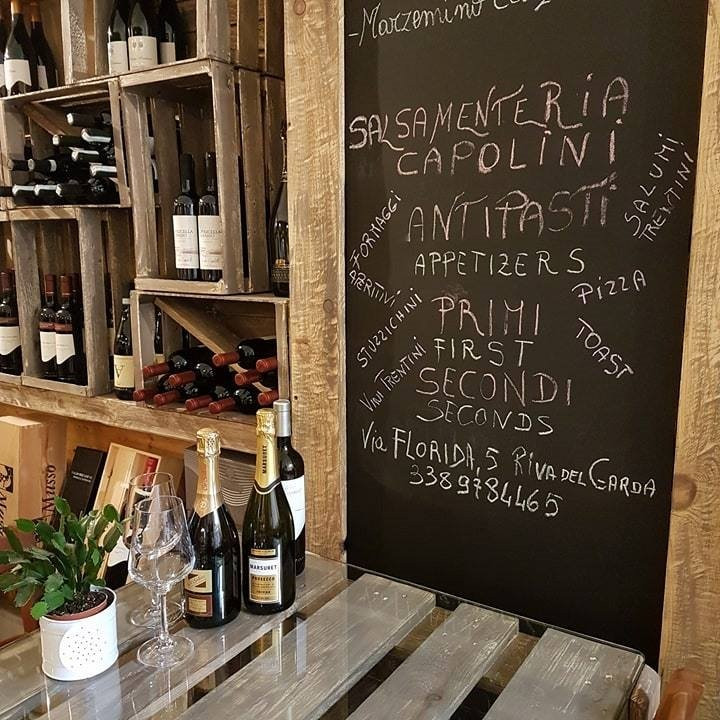 -Marzemino
SALSAMENTERIA
CAPOLINI
ANTIPASTI
APPETIZERS
PRIMI
FIRST
SECONDI
SECONDS
Via FLORIDA, 5 RIVA DEL GARDA
3389784465
FORMAGGI
APERITIVI
STUZZICHINI
VINI TRENTINI
SALUMI
TRENTINI
PIZZA
TOAST
MARSURET
MARSURET
PROSECCO